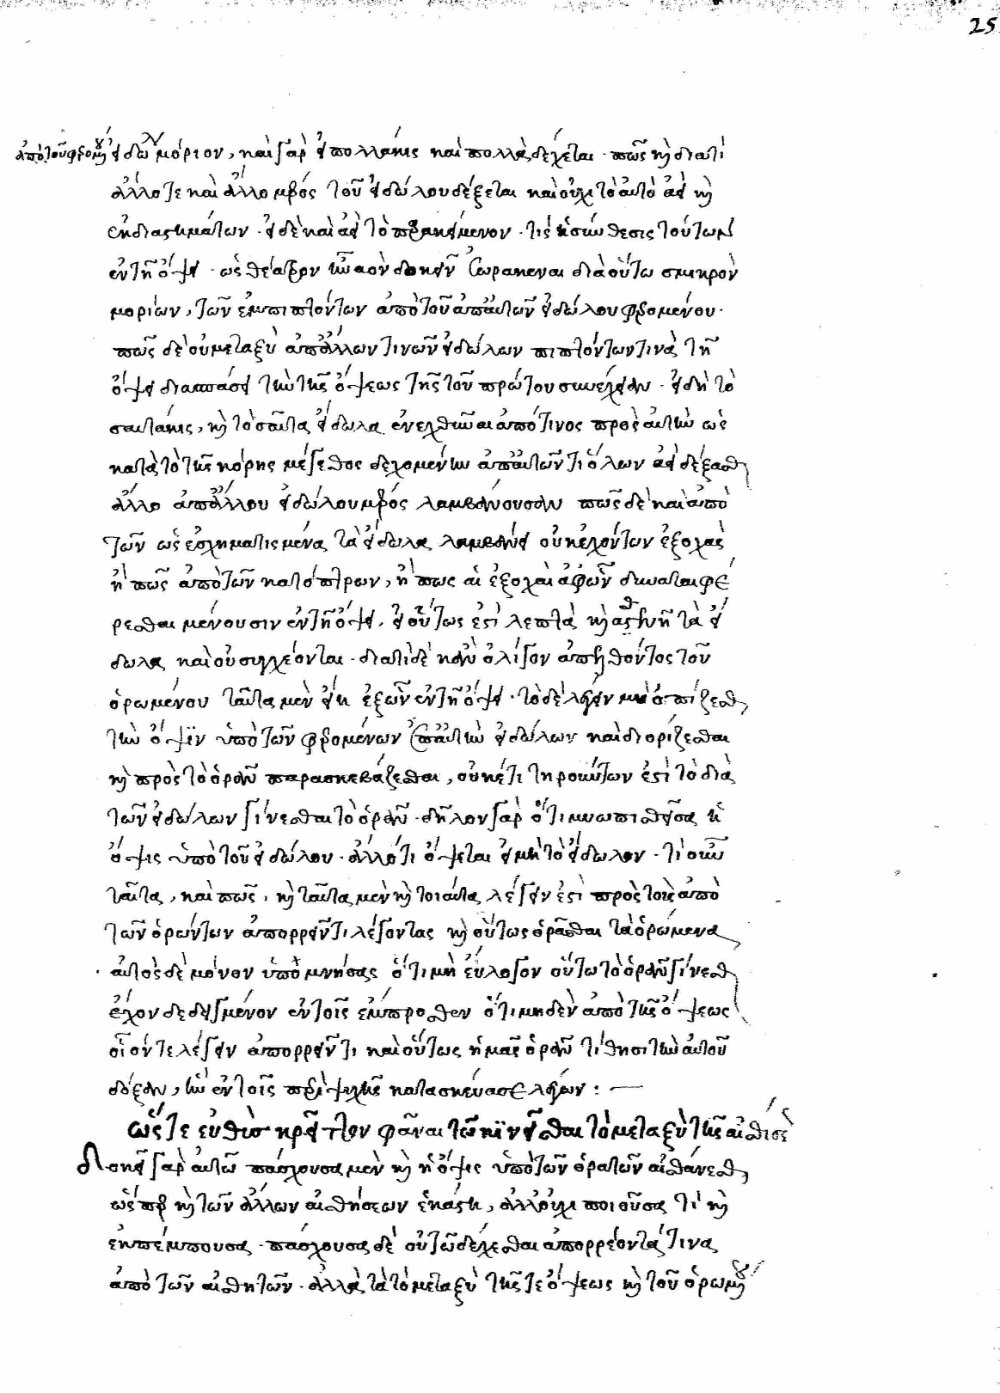 25
ἀπὸ τοῦ φερομένου εἰδώλου μόριον, καὶ γὰρ εἰ πολλάκις καὶ πολλὰ δέχεται · πῶς καὶ διατί
ἄλλοτε καὶ ἄλλο μέρος τοῦ εἰδώλου δέξεται καὶ οὐχὶ τὸ αὐτὸ ἀεὶ καὶ
ἐκ διαστημάτων · εἰ δὲ καὶ ἀεὶ τὸ προκείμενον · τίς ἡ σύνθεσις τούτων
ἐν τῇ ὄψει · ὡς θέατρον ἢ ναὸν δοκεῖν ἑωρακέναι διὰ οὕτω σμικρὸν
μορίων, τῶν ἐμπιπτόντων ἀπὸ τοῦ ἀπ᾽ αὐτῶν εἰδώλου φερομένου ·
πῶς δὲ οὐ μεταξὺ ἀπ᾽ ἄλλων τινῶν εἰδώλων πιπτόντων τινὰ τῇ
ὄψει διασπάσει τὴν τῆς ὄψεως τῆς τοῦ πρώτου συνέχειαν · εἰ δὴ το
σαυτάκις, καὶ τοσαῦτα εἴδωλα ἐνεχθῆναι ἀπό τινος πρὸς αὐτὴν ὡς
κατὰ τὸ τῆς κόρης μέγεθος δεχομένην ἀπ᾽ αὐτῶν τι ὅλων ἀεὶ δέξασθαι
ἄλλο ἀπ᾽ ἄλλου εἰδώλου μέρος λαμβάνουσαν πῶς δὲ καὶ ἀπὸ
τῶν ὡς ἐσχηματισμένα τὰ εἴδωλα λαμβάνει οὐκ ἐχόντων ἐξοχὰς
ἢ πῶς ἀπὸ τῶν κατόπτρων, ἢ πῶς αἱ ἐξοχαὶ ἀφ᾽ ὧν δύναται φέ
ρεσθαι μένουσιν ἐν τῇ ὄψει, εἰ οὕτως ἐστὶ λεπτὰ καὶ ἀσθενῆ τὰ εἴ
δωλα καὶ οὐ συγχέονται · διατί δὲ κἂν ὀλίγον ἀπελθόντος τοῦ
ὁρωμένου ταῦτα μὲν εἴη ἐξ ὧν ἐν τῇ ὄψει · τὸ δὲ λέγειν μὴ ὀπίζεσθαι
τὴν ὄψιν ὑπὸ τῶν φερομένων ἐπ᾽ αὐτὴν εἰδώλων καὶ διορίζεσθαι
καὶ πρὸς τὸ ὁρᾶν παρασκευάζεσθαι, οὐκέτι τηρούντων ἐστὶ τὸ διὰ
τῶν εἰδώλων γίνεσθαι τὸ ὁρᾶν · δῆλον γὰρ ὅτι μυωπισθεῖσα ἡ
ὄψις ὑπὸ τοῦ εἰδώλου · ἄλλο τι ὄψεται εἰ μὴ τὸ εἴδωλον · τί οὖν
ταῦτα, καὶ πῶς, καὶ ταῦτα μὲν καὶ τοιαῦτα λέγειν ἐστὶ πρὸς τοὺς ἀπὸ
τῶν ὁρώντων ἀπορρεῖν τι λέγοντας καὶ οὕτως ὁρᾶσθαι τὰ ὁρώμενα
αὐτὸς δὲ μόνον ὑπομνήσας ὅτι μὴ εὔλογον οὕτω τὸ ὁρᾶν γίνεσθαι
ἔχον δεδειγμένον ἐν τοῖς ἔμπροσθεν ὅτι μηδὲν ἀπὸ τῆς ὄψεως
οἷόν τε λέγειν ἀπορρεῖν τι καὶ οὕτως ἡμᾶς ὁρᾶν τίθησι τὴν αὐτοῦ
δόξαν, ἣν ἐν τοῖς περὶ ψυχῆς κατασκεύασε λέγων :—
ὥστε εὐθὺς κρεῖττον φάναι τῷ κινεῖσθαι τὸ μεταξὺ τῆς αἰσθήσεως
Δοκεῖ γὰρ αὐτῷ πάσχουσα μὲν καὶ ἡ ὄψις ὑπὸ τῶν ὁρατῶν αἰσθάνεσθαι
ὥσπερ καὶ τῶν ἄλλων αἰσθήσεων ἑκάστη, ἀλλ᾽ οὐχὶ ποιοῦσά τι καὶ
ἐκπέμπουσα · πάσχουσα δὲ οὐ τῷ δέχεσθαι ἀπορρέοντά τινα
ἀπὸ τῶν αἰσθητῶν · ἀλλὰ τὰ τὸ μεταξὺ τῆς τε ὄψεως καὶ τοῦ ὁρωμένου